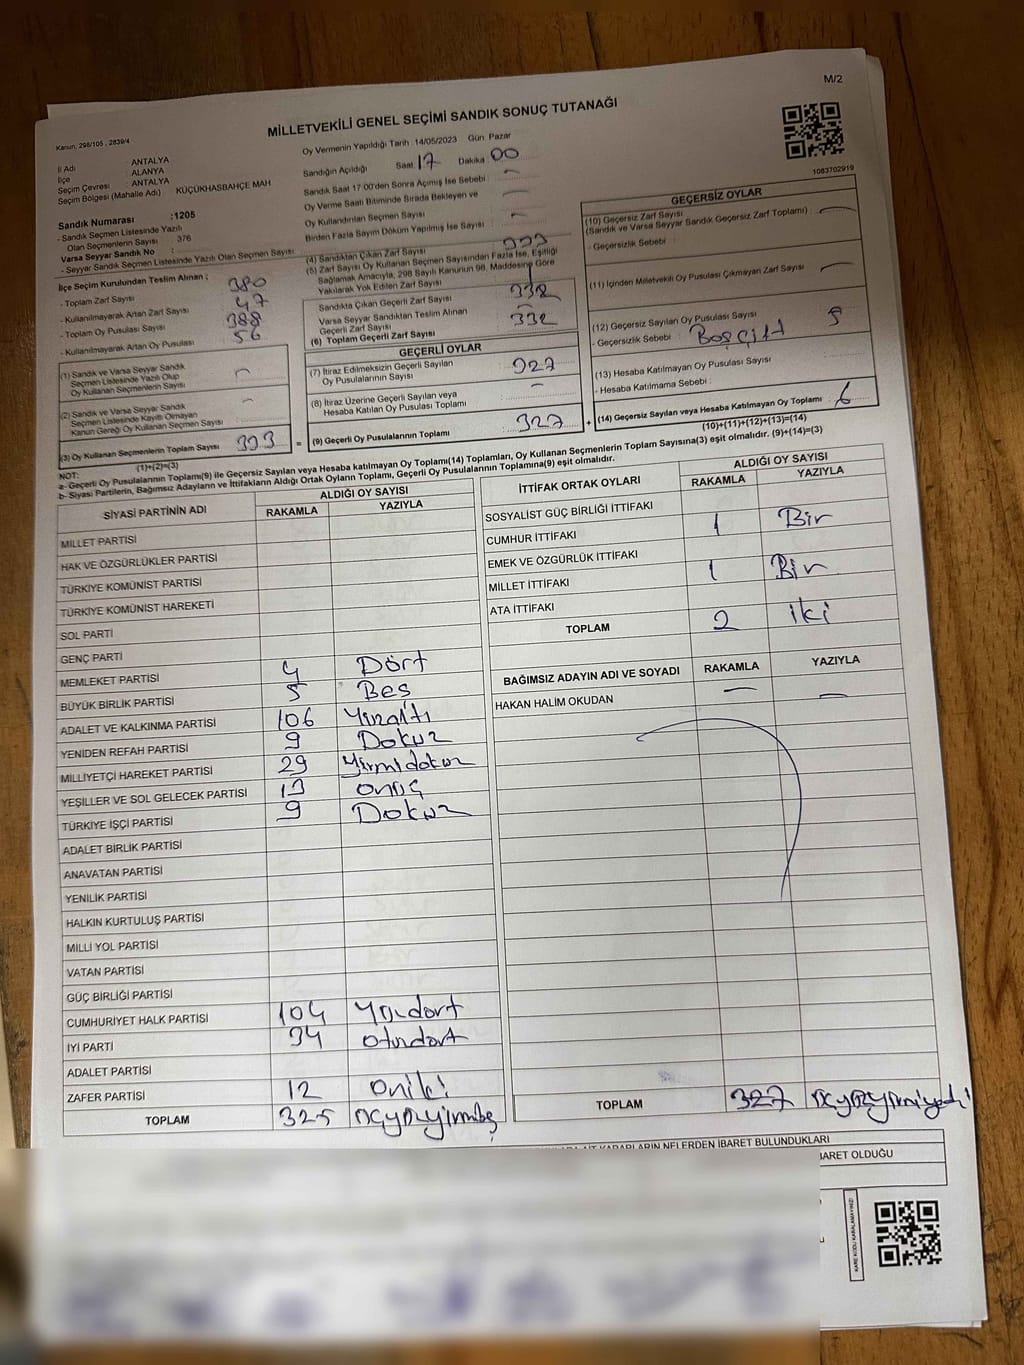 M/2
MİLLETVEKİLİ GENEL SEÇİMİ SANDIK SONUÇ TUTANAĞI
Kanun, 298/105 , 2839/4
İl Adı ANTALYA
İlçe ALANYA
Seçim Çevresi : ANTALYA
Seçim Bölgesi (Mahalle Adı) KÜÇÜKHASBAHÇE MAH
Sandık Numarası :1205
- Sandık Seçmen Listesinde Yazılı
Olan Seçmenlerin Sayısı 376
Varsa Seyyar Sandık No
- Seyyar Sandık Seçmen Listesinde Yazılı Olan Seçmen Sayısı
Oy Vermenin Yapıldığı Tarih :14/05/2023 Gün Pazar
Sandığın Açıldığı Saat 17 Dakika 00
Sandık Saat 17:00'den Sonra Açımış İse Sebebi :
Oy Verme Saati Bitiminde Sırada Bekleyen ve
Oy Kullandırılan Seçmen Sayısı
Birden Fazla Sayım Döküm Yapılmış İse Sayısı
1083702919
İlçe Seçim Kurulundan Teslim Alınan ;
- Toplam Zarf Sayısı 380
- Kullanılmayarak Artan Zarf Sayısı 47
- Toplam Oy Pusulası Sayısı 388
- Kullanılmayarak Artan Oy Pusulası 56
(1) Sandık ve Varsa Seyyar Sandık
Seçmen Listesinde Yazılı Olup
Oy Kullanan Seçmenlerin Sayısı
(2) Sandık ve Varsa Seyyar Sandık
Seçmen Listesinde Kayıtlı Olmayan
Kanun Gereği Oy Kullanan Seçmen Sayısı
(3) Oy Kullanan Seçmenlerin Toplam Sayısı 333
(1)+(2)=(3)
(4) Sandıktan Çıkan Zarf Sayısı 333
(5) Zarf Sayısı Oy Kullanan Seçmen Sayısından Fazla İse, Eşitliği
Sağlamak Amacıyla, 298 Sayılı Kanunun 98. Maddesine Göre
Yakılarak Yok Edilen Zarf Sayısı
Sandıkta Çıkan Geçerli Zarf Sayısı 332
Varsa Seyyar Sandıktan Teslim Alınan
Geçerli Zarf Sayısı
(6) Toplam Geçerli Zarf Sayısı 332
GEÇERLİ OYLAR
(7) İtiraz Edilmeksizin Geçerli Sayılan
Oy Pusulalarının Sayısı 327
(8) İtiraz Üzerine Geçerli Sayılan veya
Hesaba Katılan Oy Pusulası Toplamı
= (9) Geçerli Oy Pusulalarının Toplamı 327 +
GEÇERSİZ OYLAR
(10) Geçersiz Zarf Sayısı
(Sandık ve Varsa Seyyar Sandık Geçersiz Zarf Toplamı)
- Geçersizlik Sebebi :
(11) İçinden Milletvekili Oy Pusulası Çıkmayan Zarf Sayısı
(12) Geçersiz Sayılan Oy Pusulası Sayısı 5
- Geçersizlik Sebebi : Boş Çift
(13) Hesaba Katılmayan Oy Pusulası Sayısı
- Hesaba Katılmama Sebebi :
(14) Geçersiz Sayılan veya Hesaba Katılmayan Oy Toplamı 6
(10)+(11)+(12)+(13)=(14)
NOT:
a- Geçerli Oy Pusulalarının Toplamı(9) ile Geçersiz Sayılan veya Hesaba katılmayan Oy Toplamı(14) Toplamları, Oy Kullanan Seçmenlerin Toplam Sayısına(3) eşit olmalıdır. (9)+(14)=(3)
b- Siyasi Partilerin, Bağımsız Adayların ve İttifakların Aldığı Ortak Oyların Toplamı, Geçerli Oy Pusulalarının Toplamına(9) eşit olmalıdır.
SİYASİ PARTİNİN ADI ALDIĞI OY SAYISI
RAKAMLA YAZIYLA
MİLLET PARTİSİ
HAK VE ÖZGÜRLÜKLER PARTİSİ
TÜRKİYE KOMÜNİST PARTİSİ
TÜRKİYE KOMÜNİST HAREKETİ
SOL PARTİ
GENÇ PARTİ
MEMLEKET PARTİSİ 4 Dört
BÜYÜK BİRLİK PARTİSİ 5 Beş
ADALET VE KALKINMA PARTİSİ 106 Yüzaltı
YENİDEN REFAH PARTİSİ 9 Dokuz
MİLLİYETÇİ HAREKET PARTİSİ 29 Yirmidokuz
YEŞİLLER VE SOL GELECEK PARTİSİ 13 onüç
TÜRKİYE İŞÇİ PARTİSİ 9 Dokuz
ADALET BİRLİK PARTİSİ
ANAVATAN PARTİSİ
YENİLİK PARTİSİ
HALKIN KURTULUŞ PARTİSİ
MİLLİ YOL PARTİSİ
VATAN PARTİSİ
GÜÇ BİRLİĞİ PARTİSİ
CUMHURİYET HALK PARTİSİ 104 Yüzdört
İYİ PARTİ 34 otuzdört
ADALET PARTİSİ
ZAFER PARTİSİ 12 oniki
TOPLAM 325 üçyüzyirmibeş
İTTİFAK ORTAK OYLARI ALDIĞI OY SAYISI
RAKAMLA YAZIYLA
SOSYALİST GÜÇ BİRLİĞİ İTTİFAKI
CUMHUR İTTİFAKI 1 Bir
EMEK VE ÖZGÜRLÜK İTTİFAKI
MİLLET İTTİFAKI 1 Bir
ATA İTTİFAKI
TOPLAM 2 iki
BAĞIMSIZ ADAYIN ADI VE SOYADI RAKAMLA YAZIYLA
HAKAN HALİM OKUDAN
TOPLAM 327 üçyüzyirmiyedi
KARARLARIN NELERDEN İBARET BULUNDUKLARI
İBARET OLDUĞU
KARE KODU KARALAMAYINIZ!